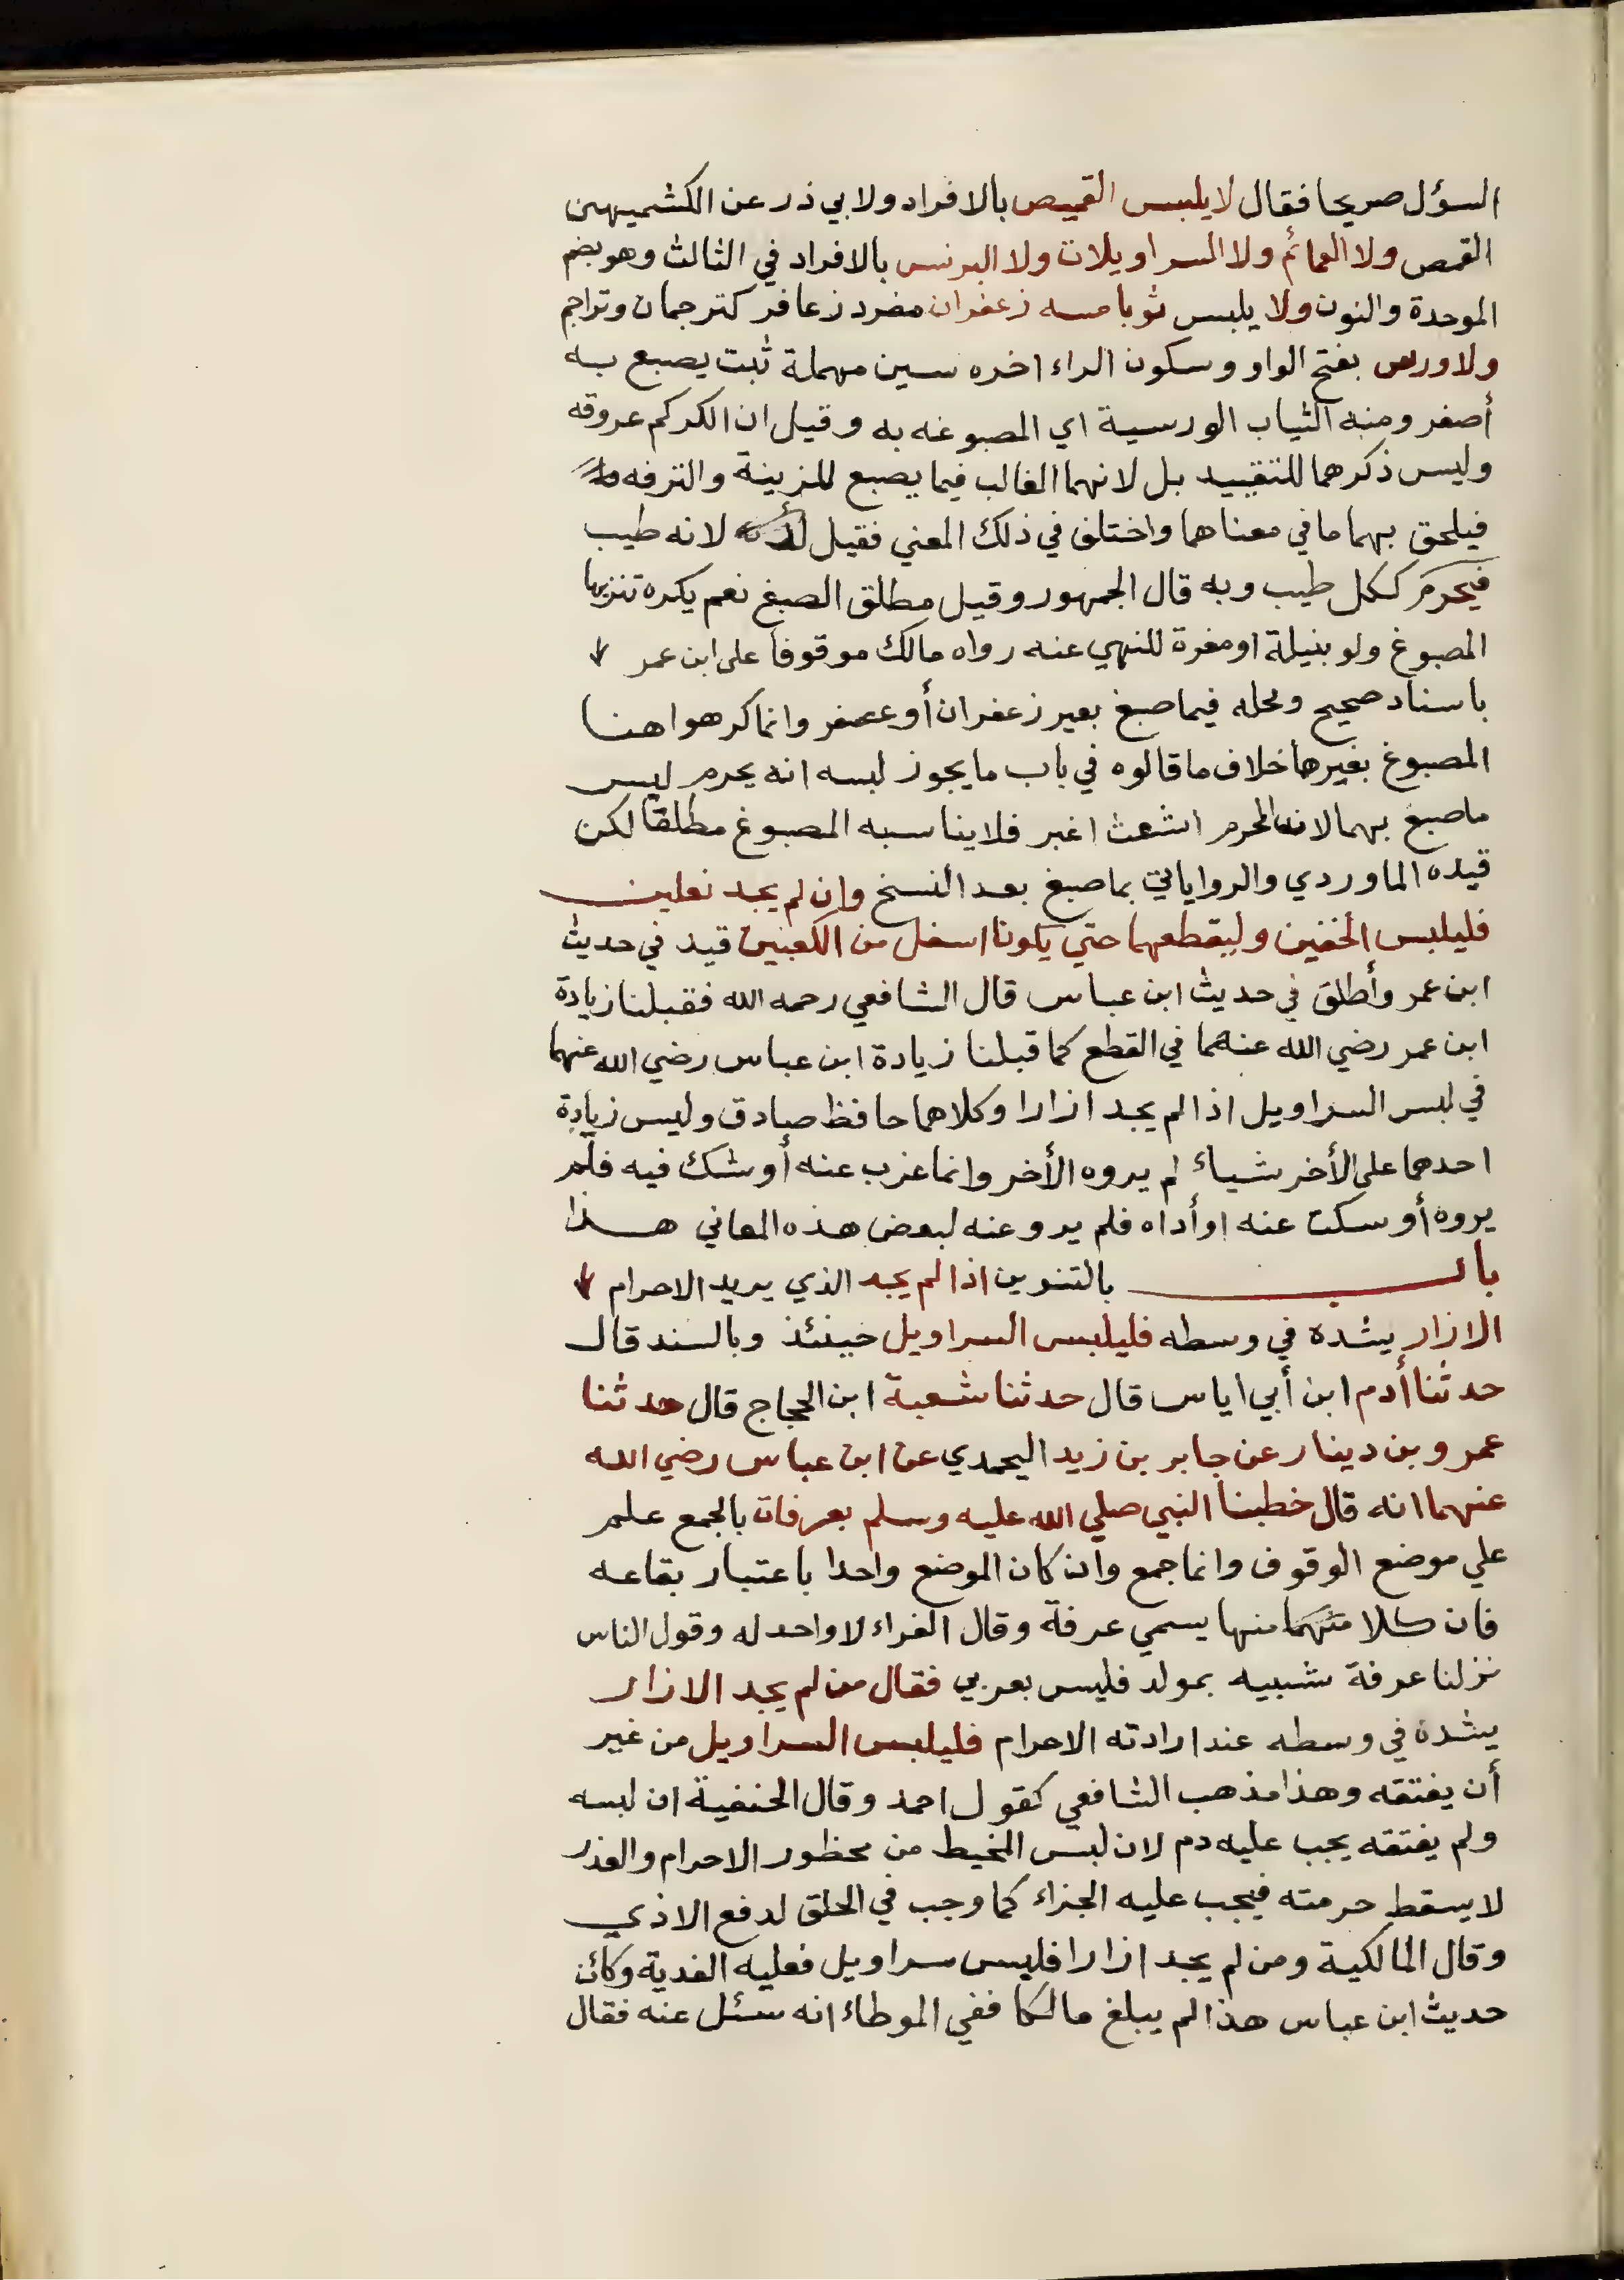 السؤل صريحا فقال لا يلبس القميص بالافراد ولابي ذر عن الكشميهين
القمص ولا العمائم ولا السراويلات ولا البرنس بالافراد في الثالث وهو بضم
الموحدة والنون ولا يلبس ثوبا مسه زعفران مفرد زعافر كترجمان وتراجم
ولا ورس بفتح الواو وسكون الراء اخره سين مهملة ثبت يصبع به
أصفر ومنه الثياب الورسية اي المصبوغه به وقيل ان الكركم عروقه
وليس ذكرهما للتقييد بل لانهما الغالب فيما يصبع للزينة والترفه
فيلحق بهما ما في معناهما واختلف في ذلك المعني فقيل لانه طيب
فيحرم ككل طيب وبه قال الجمهور وقيل مطلق الصبغ نعم يكره تنزيها
المصبوغ ولو بنيلة او مغرة للنهي عنه رواه مالك موقوفا على ابن عمر
باسناد صحيح ومحله فيما صبغ بعير زعفران أو عصفر وانما كرهوا هنا
المصبوغ بغيرهما خلاف ما قالوه في باب ما يجوز لبسه انه يحرم لبس
ما صبغ بهما لان المحرم اشعث اغبر فلا يناسبه المصبوغ مطلقا لكن
قيده الماوردي والرواياني بما صبغ بعد النسخ وإن لم يجد نعلين
فليلبس الخفين وليقطعهما حتي يكونا اسفل من الكعبين قيد في حديث
ابن عمر وأطلق في حديث ابن عباس قال الشافعي رحمه الله فقبلنا زيادة
ابن عمر رضي الله عنهما في القطع كما قبلنا زيادة ابن عباس رضي الله عنهما
في لبس السراويل اذا لم يجد ازارا وكلاهما حافظ صادق وليس زيادة
احدهما على الأخر شياء لم يروه الأخر وانما عزب عنه أو شك فيه فلم
يروه أو سكت عنه او أداه فلم يرو عنه لبعض هذه المعاني هذا
باب بالتنوين اذا لم يجد الذي يريد الاحرام
الازار يشده في وسطه فليلبس السراويل حينئذ وبالسند قال
حدثنا أدم ابن أبي اياس قال حدثنا شعبة ابن الحجاج قال حدثنا
عمرو بن دينار عن جابر بن زيد اليحمدي عن ابن عباس رضي الله
عنهما انه قال خطبنا النبي صلي الله عليه وسلم بعرفات بالجمع علم
علي موضع الوقوف وانما جمع وان كان الموضع واحدا باعتبار بقاعه
فان كلا منها يسمي عرفة وقال الفراء لا واحد له وقول الناس
نزلنا عرفة شبيه بمولد فليس بعربي فقال من لم يجد الازار
يشده في وسطه عند ارادته الاحرام فليلبس السراويل من غير
أن يفتقه وهذا مذهب الشافعي كقول احمد وقال الحنفية ان لبسه
ولم يفتقه يجب عليه دم لان لبس المخيط من محظور الاحرام والعذر
لا يسقط حرمته فيجب عليه الجزاء كما وجب في الحلق لدفع الاذي
وقال المالكية ومن لم يجد ازارا فلبس سراويل فعليه الفدية وكائن
حديث ابن عباس هذا لم يبلغ مالكا ففي الموطاء انه سئل عنه فقال